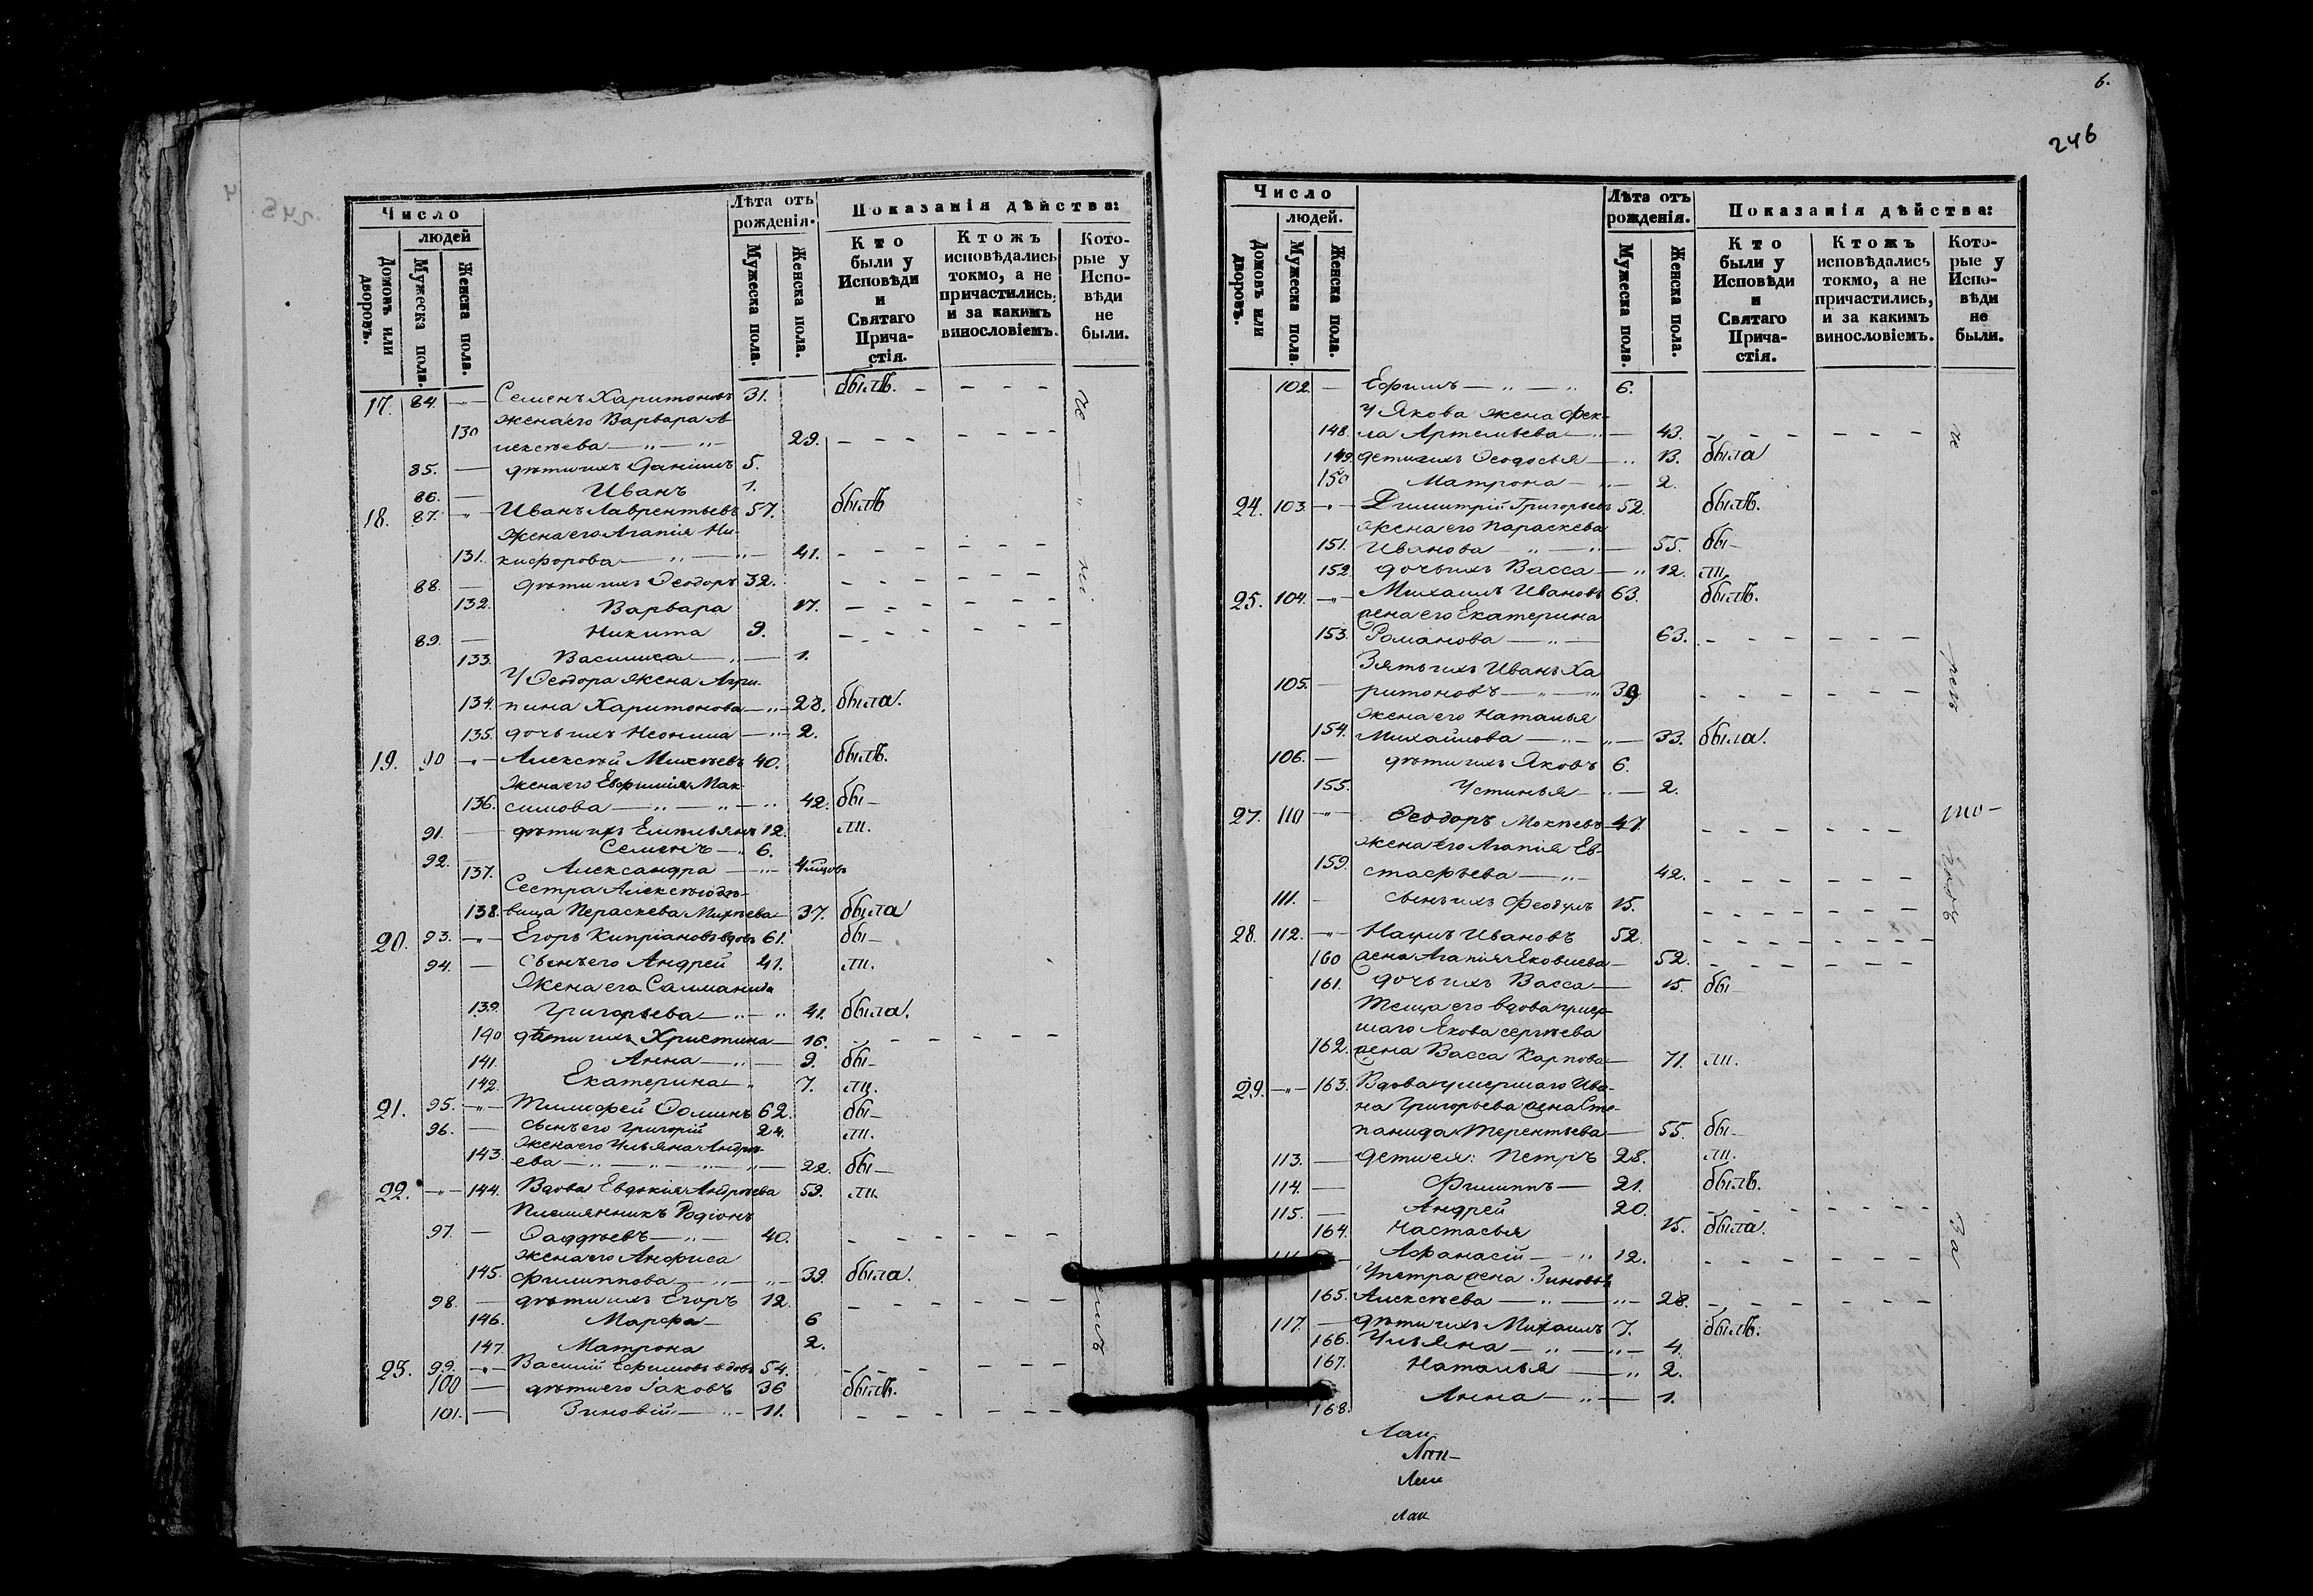 6.
246
Число
людей
Домовъ или дворовъ.
Мужеска пола.
Женска пола.
Лѣта отъ рожденія.
Мужеска пола.
Женска пола.
Показанія дѣйства:
Кто были у Исповѣди и Святаго Прича-стія.
Ктожъ исповѣдались токмо, а не причастились, и за какимъ винословіемъ.
Кото-рые у Испо-вѣди не были.
17. 84. Семенъ Харитоновъ 31. былъ.
жена его Варвара А-
130 лексѣева 29.
85. дѣти ихъ Даніилъ 5.
86. Иванъ 1.
18. 87. Иванъ Лаврентьевъ 57. былъ
жена его Агапія Ни-
131. кифорова 41.
88. дѣти ихъ Ѳеодоръ 32.
132. Варвара 17.
89. Никита 9.
133. Василиса 1.
У Ѳеодора жена Агри-
134. пина Харитонова 28. была.
135. дочь ихъ Неонила 2.
19. 90 Алексѣй Михѣевъ 40. былъ.
жена его Евфимія Мак-
136. симова 42. бы-
91. дѣти ихъ Емельянъ 12. ли.
92. Семенъ 6.
137. Александра 4
Сестра Алексѣю дѣ-
138. вица Пераскева Михѣева 37. была
20. 93. Егоръ Кипріановъ вдовъ 61. бы-
94. сынъ его Андрей 41. ли.
Жена его Саломанида
139. Григорьева 41. была.
140 дѣти ихъ Христина 16.
141. Анна 9. бы-
142. Екатерина 7. ли.
21. 95. Тимофей Ѳоминъ 62. бы-
96. сынъ его Григорій 24. ли.
жена его Ульяна Андре-
143. ева 22. бы-
22. 144. Вдова Евдокия Андреева 59. ли.
Племянникъ Родіонъ
97. Ѳаддѣевъ 40.
жена его Анфиса
145. Филиппова 39. была.
98. дѣти ихъ Егоръ 12.
146. Марфа 6
147. Матрона 2.
23. 99. Василій Ефимовъ вдовъ 54.
100 дѣти его Іаковъ 36 былъ.
101. Зиновій 11.
Число
людей.
Домовъ или дворовъ.
Мужеска пола.
Женска пола.
Лѣта отъ рожденія.
Мужеска пола.
Женска пола.
Показанія дѣйства:
Кто были у Исповѣди и Святаго Прича-стія.
Ктожъ исповѣдались токмо, а не причастились, и за какимъ винословіемъ.
Кото-рые у Испо-вѣди не были.
102. Ефимъ 6.
У Якова жена Фек-
148. ла Артемьева 43.
149. дети ихъ Ѳеодосья 13. была
150 Матрона 2.
24. 103. Димитрій Григорьевъ 52. былъ.
жена его Параскева
151. Иванова 55. бы-
152. дочь ихъ Васса 12. ли.
25. 104. Михаилъ Ивановъ 63. былъ.
жена его Екатерина
153. Романова 63.
Зять ихъ Иванъ Ха
105. ритоновъ 39.
жена его Наталья
154. Михайлова 33. была.
106. дѣти ихъ Яковъ 6.
155. Устинья 2.
27. 110 Ѳеодоръ Мокѣевъ 47.
жена его Агапія Ев-
159. стафьева 42.
111. сынъ ихъ 15.
28. 112. Наумъ Ивановъ 52.
160 жена Агапія Яковлева 52.
161. дочь ихъ Васса 15. бы-
Теща его вдова умер-
шаго Якова Сергѣева
162. жена Васса Карпова 71. ли.
29. 163. Вдова умершаго Ива-
на Григорьева жена Сте-
панида Терентьева 55. бы-
113. дети ея: Петръ 28. ли.
114. Филиппъ 21. былъ.
115. Андрей 20.
164. Настасья 15. была.
Афанасій 12.
У Петра жена Зиновія
165. Алексѣева 28.
117. дѣти ихъ Михаилъ 7. былъ.
166. Ульяна 4.
167. Наталья 2.
Анна 1.
168.